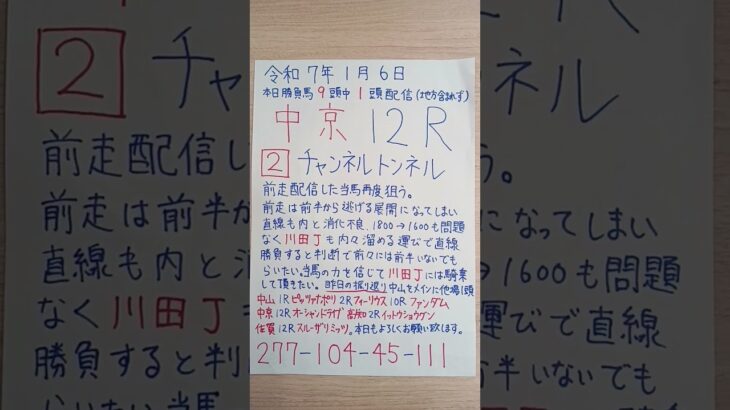 令和7年1月6日
本日勝負馬9頭中1頭配信(地方含めず)
中京12R
2 チャンネルトンネル
前走配信した当馬再度狙う。
前走は前半から逃げる展開になってしまい
直線も内と消化不良 1800→1600も問題
なく川田Jも内々溜める運びで直線
勝負すると判断で前々には前半いないでも
らいたい。当馬の力を信じて川田Jには騎乗
して頂きたい。昨日の振り返り中山をメインに他場1頭
中山1Rピッツァナポリ 2Rフォーリウス 10Rファンダム
中京12Rオーシャンドライブ 高知2Rイットウショウゲン
佐賀12Rスルーザリミッツ。本日もよろしくお願い致します。
277-104-45-111